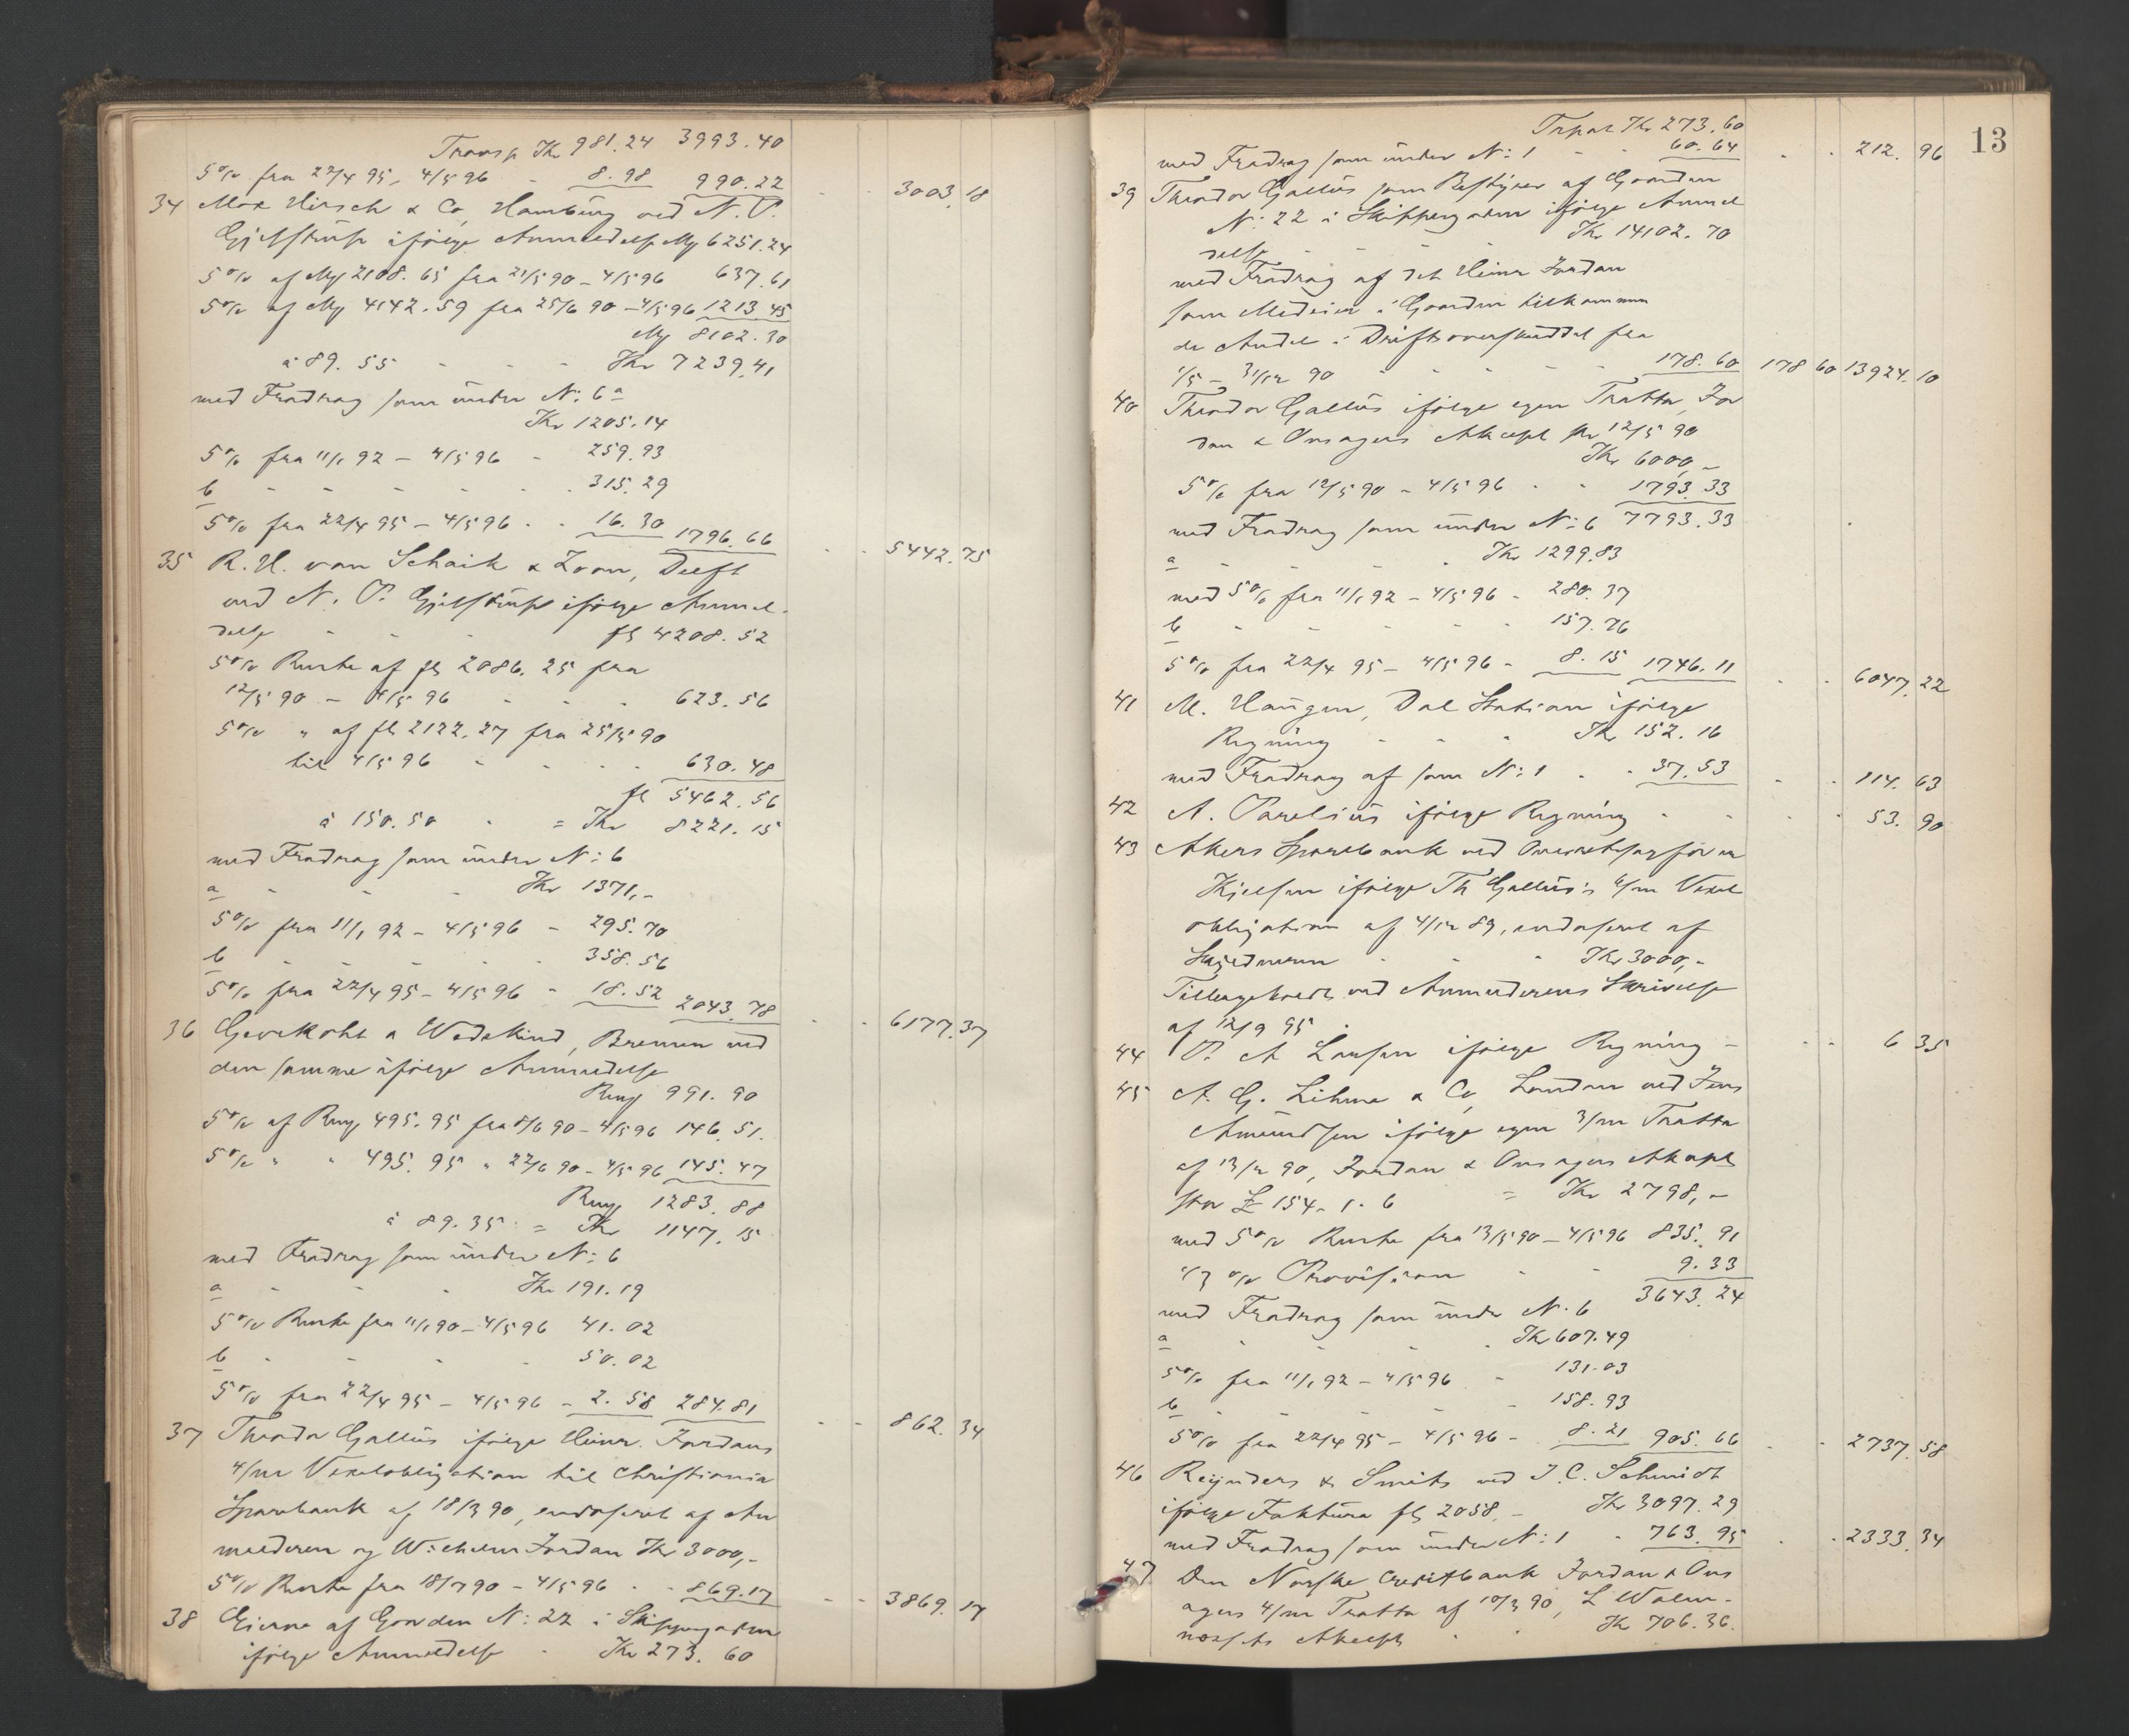 Transp. Kr 981.24 3993.40
5% fra 22/4 95 - 4/5 96 - 8.98 990.22 - - 3003.18
34 Max Hirsch & Co, Hamburg ved N. P.
Gjelstrup ifølge Anmeldelse Mg 6251.24
5% af Mg 2108.65 fra 21/5 90 - 4/5 96 637.61
5% af Mg 4142.59 fra 25/6 90 - 4/5 96 1213.45
Mg 8102.30
à 89.55 - - - Kr 7239.41
med Fradrag som under N: 6 a
Kr 1205.14
5% fra 11/1 92 - 4/5 96 - 259.93
b - - - - - - 315.29
5% fra 22/4 95 - 4/5 96 - - 16.30 1796.66 - - 5442.75
35 R. H. van Schaik & Zoon, Delft
ved N. P. Gjelstrup ifølge Anmel-
delse - - - fl 4208.52
5% Rente af fl 2086.25 fra
12/5 90 - 4/5 96 - - - 623.56
5% " af fl 2122.27 fra 25/5 90
til 4/5 96 - - - - 630.48
fl 5462.56
à 150.50 - = Kr 8221.15
med Fradrag som under N: 6
a - - - Kr 1371,-
5% fra 11/1 92 - 4/5 96 - 295.70
b - - - - - - 358.56
5% fra 22/4 95 - 4/5 96 - 18.52 2043.78 - - 6177.37
36 Gevekoht & Wedekind, Bremen ved
den samme ifølge Anmeldelse
Rmg 991.90
5% af Rmg 495.95 fra 8/6 90 - 4/5 96 146.51.
5% " " 495.95 " 22/6 90 - 4/5 96 145.47
Rmg 1283.88
à 89.35 = Kr 1147.15
med Fradrag som under N: 6
a - - - Kr 191.19
5% Rente fra 11/1 90 - 4/5 96 41.02
b - - - - 50.02
5% fra 22/4 95 - 4/5 96 - 2.58 284.81 - - 862.34
37 Theodor Gallus ifølge Heinr. Jordans
4/m Vexelobligation til Christiania
Sparebank af 18/3 90, endosseret af An
melderen og Wilhelm Jordan Kr 3000,-
5% Rente fra 18/7 90 - 4/5 96 - - 869.17 - - 3869.17
38 Eierne af Gaarden N: 22 i Skippergaden
ifølge Anmeldelse - Kr 273.60
13
Trpst Kr 273.60
med Fradrag som under N: 1 - - 60.64 - - 212.96
39 Theodor Gallus som Bestyrer af Gaarden
N: 22 i Skippergaden ifølge Anmel
delse - - - - Kr 14102.70
med Fradrag af det Heinr Jordan
som Medeier i Gaarden tilkommen
de Andel i Driftsoverskuddet fra
1/5 - 31/12 90 - - - - - 178.60 178 60 13924.10
40 Theodor Gallus ifølge egen Tratta, Jor
dan & Onsagers Akcept pr 12/5 90
Kr 6000,-
5% fra 12/5 90 - 4/5 96 - - 1793.33
med Fradrag som under N: 6 7793.33
a - - - - Kr 1299.83
med 5% fra 11/1 92 - 4/5 96 - 280.37
b - - - - - - 157.76
5% fra 22/4 95 - 4/5 96 - 8.15 1746.11 - - 6047.22
41 M. Haugen, Dal Station ifølge
Regning - - - Kr 152.16
med Fradrag af som N: 1 - - 37.53 - - 114.63
42 A. Parelius ifølge Regning - - - - 53.90
43 Akers Sparebank ved Overretssagfører
Kjelsen ifølge Th Gallus's 6/m Vexel
obligation af 4/12 89, endosseret af
Skyldneren - - - Kr 3000,-
Tilbagekaldt ved Anmelderens Skrivelse
af 12/9 95.
44 P. A Larsen ifølge Regning - - - 6 35
45 A. G. Lihme & Co, London ved Jens
Amundsen ifølge egen 3/m Tratta
af 13/2 90, Jordan & Onsagers Akcept
stor £ 154-1-6 = Kr 2798,-
med 5% Rente fra 13/5 90 - 4/5 96 835.91
1/3 % Provision - - 9.33
med Fradrag som under N: 6 3643.24
a - - - - Kr 607.49
5% fra 11/1 92 - 4/5 96 - 131.03
b - - - - - 158.93
5% fra 22/4 95 - 4/5 96 - 8.21 905.66 - - 2737.58
46 Reijnders & Smits ved J. C. Schmidt
ifølge Faktura fl 2058,- Kr 3097.29
med Fradrag som under N: 1 - 763.95 - - 2333.34
47 Den Norske Creditbank Jordan & Ons
agers 4/m Tratta af 10/3 90, L Wolm-
Akcept - - Kr 706.36.